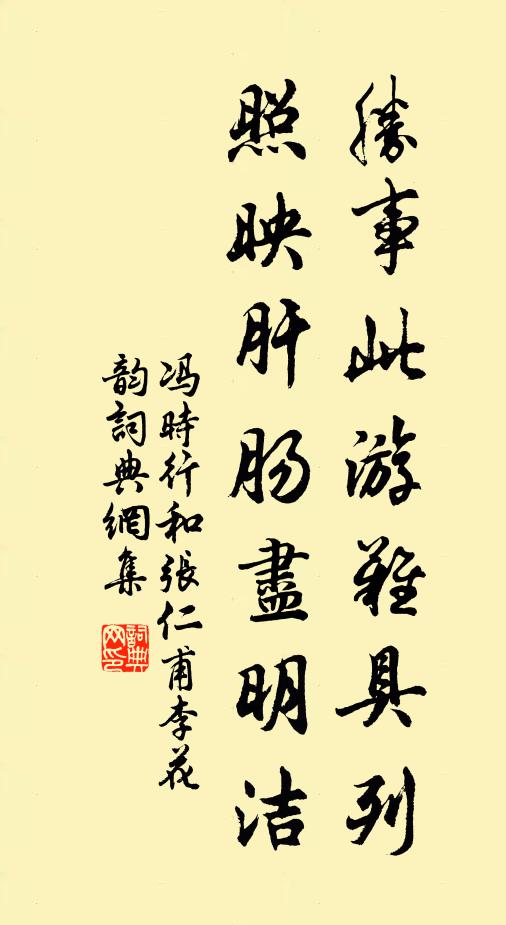 勝事此游難具列
照映肝肠盡明洁
冯時行和張仁甫李花
韵詞典網集
詞典网印